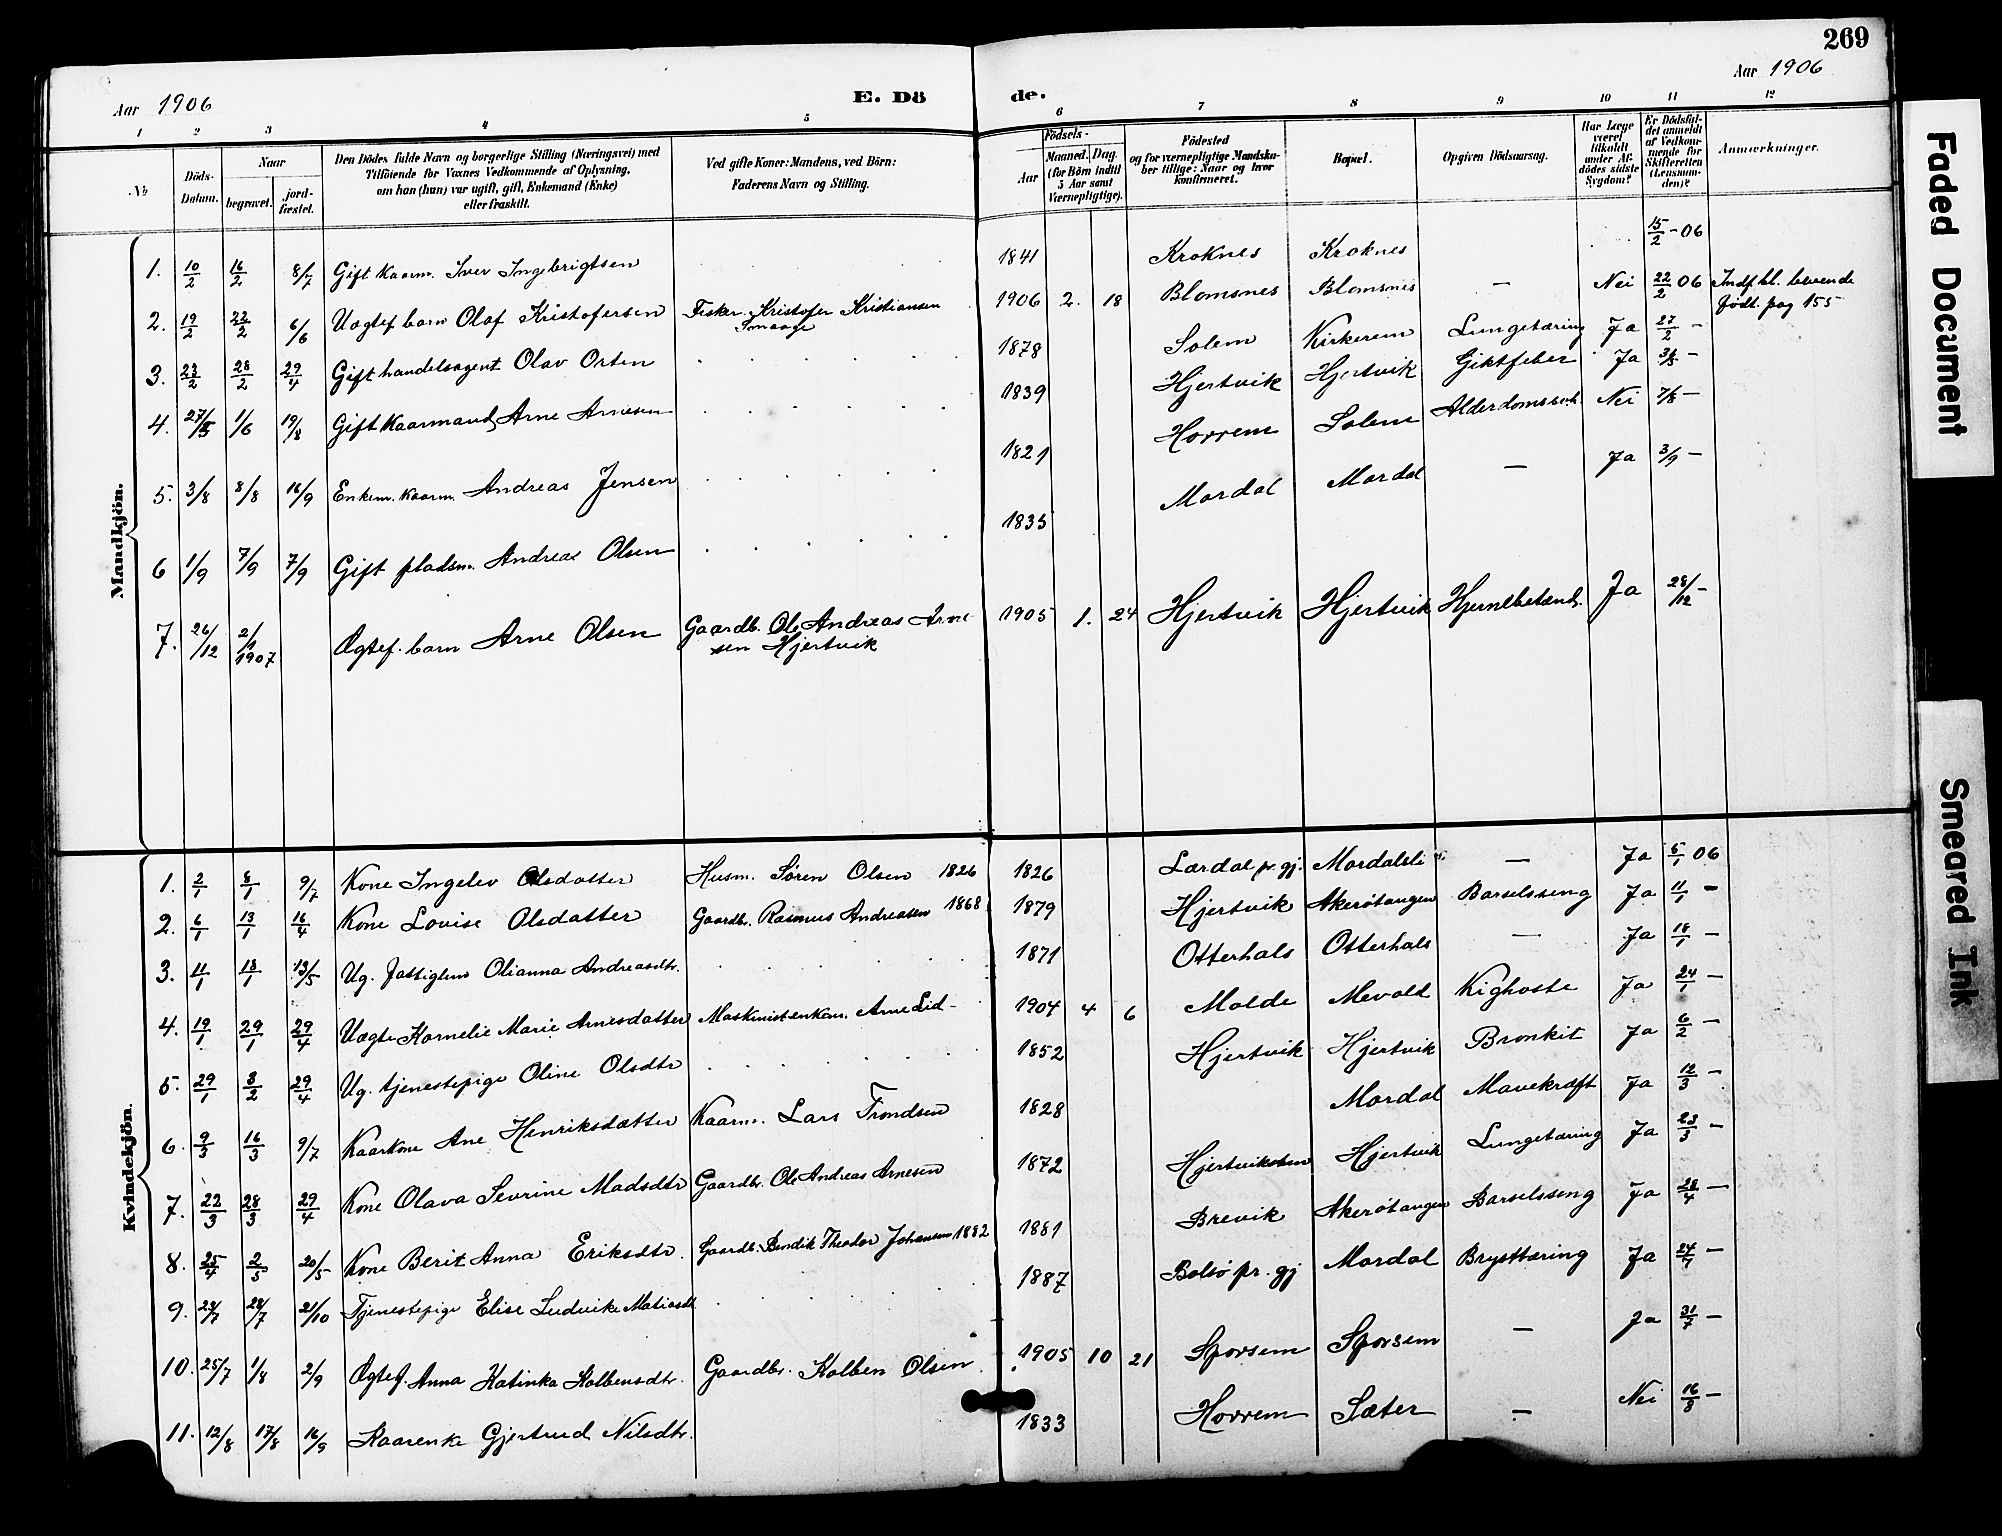 269
Aar 1906
E. Dö
de.
Aar 1906
1 2 3 4 5 6 7 8 9 10 11 12
No
Döds-
Datum.
Naar
begravet.
jord-
fæstet.
Den Dödes fulde Navn og borgerlige Stilling (Næringsvei) med
Tilföiende for Voxnes Vedkommende af Oplysning,
om han (hun) var ugift, gift, Enkemand (Enke)
eller fraskilt.
Ved gifte Koner: Mandens, ved Börn:
Faderens Navn og Stilling.
Födsels-
Aar
Maaned. Dag.
(for Börn indtil
5 Aar samt
Værnepligtige).
Födested
og for værnepligtige Mandska-
ber tillige: Naar og hvor
konfirmeret.
Bopæl.
Opgiven Dödsaarsag.
Har Læge
været
tilkaldt
under Af-
dödes sidste
Sygdom?
Er Dödsfal-
det anmeldt
af Vedkom-
mende for
Skifteretten
(Lensman-
den)?
Anmærkninger.
Mandkjön.
1. 10/2 16/2 8/7 Gift Kaarm. Iver Ingebrigtsen 1841 Kroknes Kroknes 15/2 - 06
2. 19/2 22/2 6/6 Uægtef. barn Olaf Kristofersen Fisker Kristofer Kristiansen 1906 2. 18 Blomsnes Blomsnes — Nei 22/2 06 Indf. bl. levende
Smaage født. pag 155
3. 23/2 28/2 29/4 Gift handelsagent Olav Orten 1878 Solem Kirkerem Lungetæring Ja 27/2 -
4. 27/5 1/6 19/8 Gift Kaarmand Arne Arnesen 1839 Hjertvik Hjertvik Giktfeber Ja -
5. 3/8 8/8 16/9 Enkem. Kaarm. Andreas Jensen 1821 Horrem Solem Nei 7/8 -
6 1/9 7/9 7/9 Gift pladsm. Andreas Olsen 1835 Mordal Mordal — Ja 3/9 -
7. 26/12 2/1 1907 Ægtef. barn Arne Olsen Gaardb. Ole Andreas Arne- 1905 1. 24 Hjertvik Hjertvik Hjernebetænd. Ja 28/12 -
sen Hjertvik
Kvindekjön.
1. 2/1 8/1 9/7 Kone Ingelev Olsdatter Husm. Søren Olsen 1826 1826 Lærdal pr. gj. Mordalsli — Ja 5/1 06
2. 6/1 13/1 16/4 Kone Lovise Olsdatter Gaardbr. Rasmus Andreasen 1868 1879 Hjertvik Akerøtangen Barselsseng Ja 11/1 -
3. 11/1 18/1 13/5 Ug. fattiglem Olianna Andreasdtr. 1871 Otterhals Otterhals — Ja 18/1 -
4. 19/1 29/1 29/4 Uægte Kornelie Marie Arnesdatter Maskinist enkem. Arne Lid- 1904 4 6 Molde Mevold Kighoste Ja 24/1 -
5. 29/1 3/2 29/4 Ug. tjenestepige Oline Olsdtr 1852 Hjertvik Hjertvik Bronkit Ja 6/2 -
6. 9/3 16/3 9/7 Kaarkone Ane Henriksdatter Kaarm. Lars Trondsen 1828 Mordal Mavekræft Ja 12/3 -
7. 22/3 28/3 29/4 Kone Olava Sevrine Madsdtr Gaardbr. Ole Andreas Arnesen 1872 Hjertvik Lungetæring Ja 23/3 -
8. 25/4 2/5 20/5 Kone Berit Anna Eriksdtr. Gaardb. Bendik Theodor Johansen 1882 1881 Brevik Akerøtangen Barselsseng Ja 28/4 -
9. 28/7 21/10 Tjenestepige Elise Ludvike Matiasdt 1887 Bolsø pr. gj Mordal Brysttæring Ja 24/7 -
10. 25/7 1/8 2/9 Ægtef. Anna Katinka Kolbensdtr. Gaardbr. Kolben Olsen 1905 10 21 Sporsem Sporsem — Ja 31/7 -
11. 12/8 17/8 16/9 Kaarenke Gjertrud Nilsdtr. 1833 Horrem Sæter — Nei 16/8 -
Faded Document
Smeared Ink